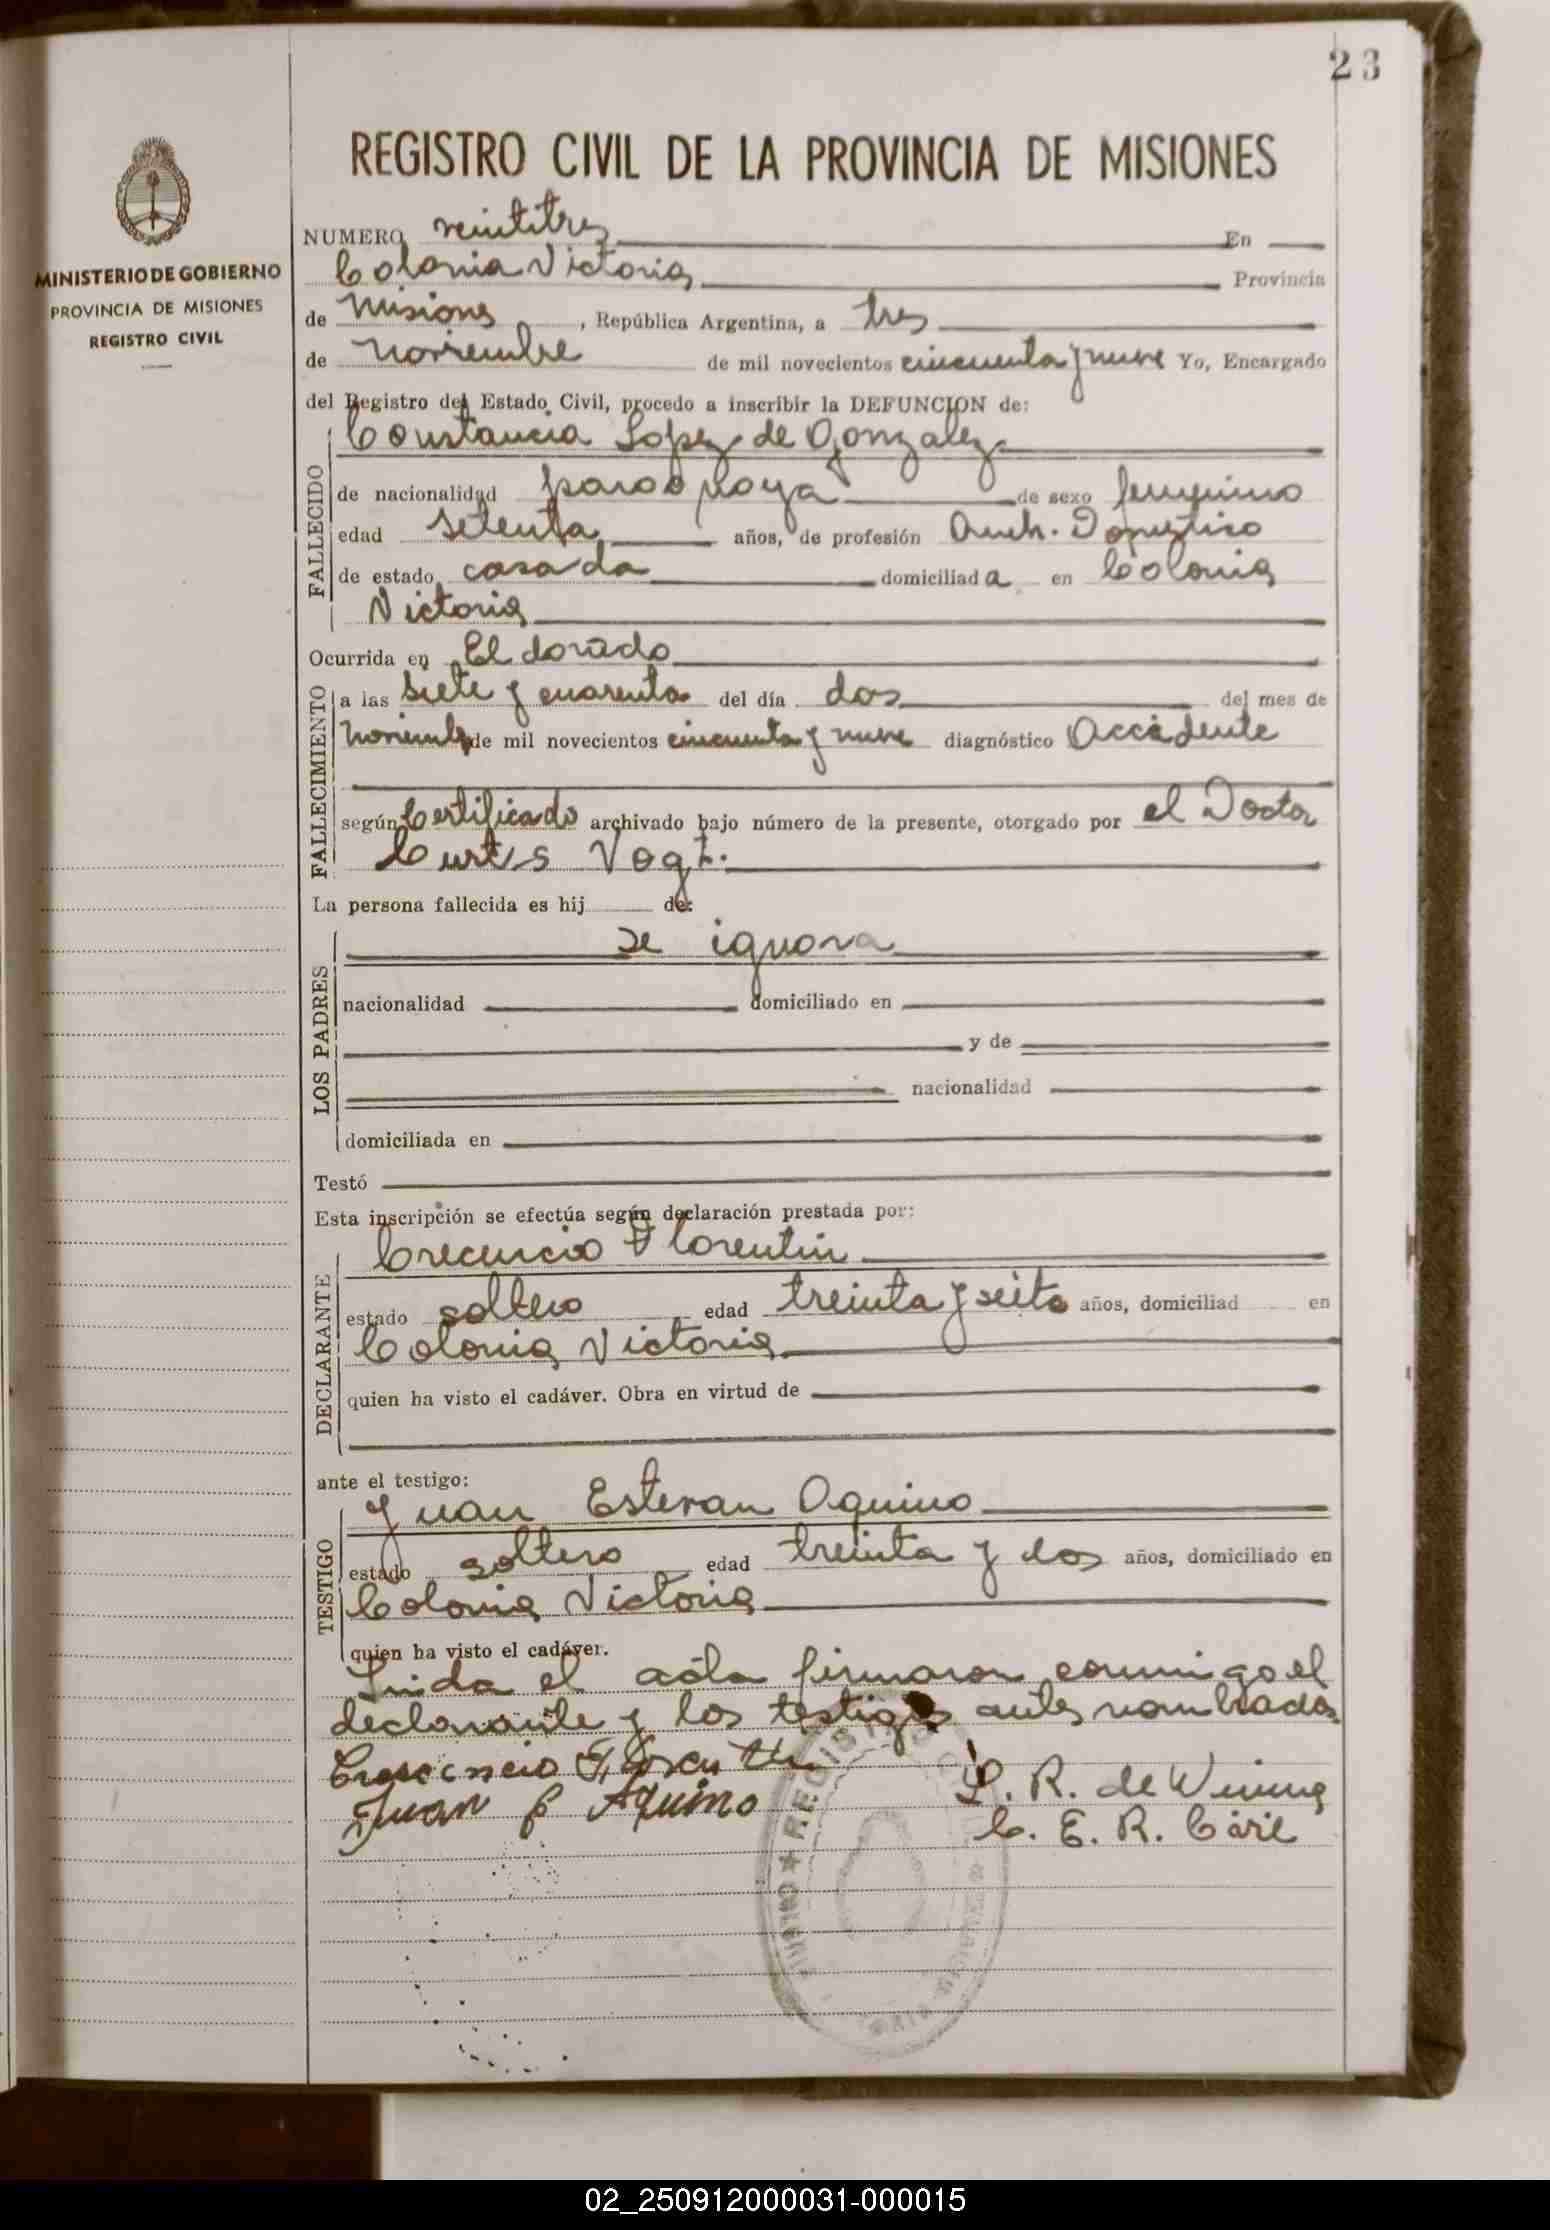 23
REGISTRO CIVIL DE LA PROVINCIA DE MISIONES
MINISTERIO DE GOBIERNO
PROVINCIA DE MISIONES
REGISTRO CIVIL
NUMERO veintitres En
Colonia Victoria Provincia
de Misiones, República Argentina, a tres
de noviembre de mil novecientos cincuenta y nueve Yo, Encargado
del Registro del Estado Civil, procedo a inscribir la DEFUNCION de:
FALLECIDO
Constancia Lopez de Gonzalez
de nacionalidad paraguaya de sexo femenino
edad setenta años, de profesión Queh. Domestico
de estado casada domiciliada en Colonia
Victoria
Ocurrida en El dorado
FALLECIMIENTO
a las siete y cuarenta del día dos del mes de
noviembre de mil novecientos cincuenta y nueve diagnóstico Accidente
según Certificado archivado bajo número de la presente, otorgado por el Doctor
Curtis Vogt.
La persona fallecida es hij de:
LOS PADRES
se ignora
nacionalidad domiciliado en
y de
nacionalidad
domiciliada en
Testó
Esta inscripción se efectúa según declaración prestada por:
DECLARANTE
Crecencio Florentin
estado soltero edad treinta y seite años, domiciliad en
Colonia Victoria
quien ha visto el cadáver. Obra en virtud de
ante el testigo:
TESTIGO
Juan Estevan Aquino
estado soltero edad treinta y dos años, domiciliado en
Colonia Victoria
quien ha visto el cadáver.
Leida el acta firmaron conmigo el
declarante y los testigos antes nombrados
Crescencio Florentin
Juan E Aquino
L. R. de
E. R. Civil
02_250912000031-000015